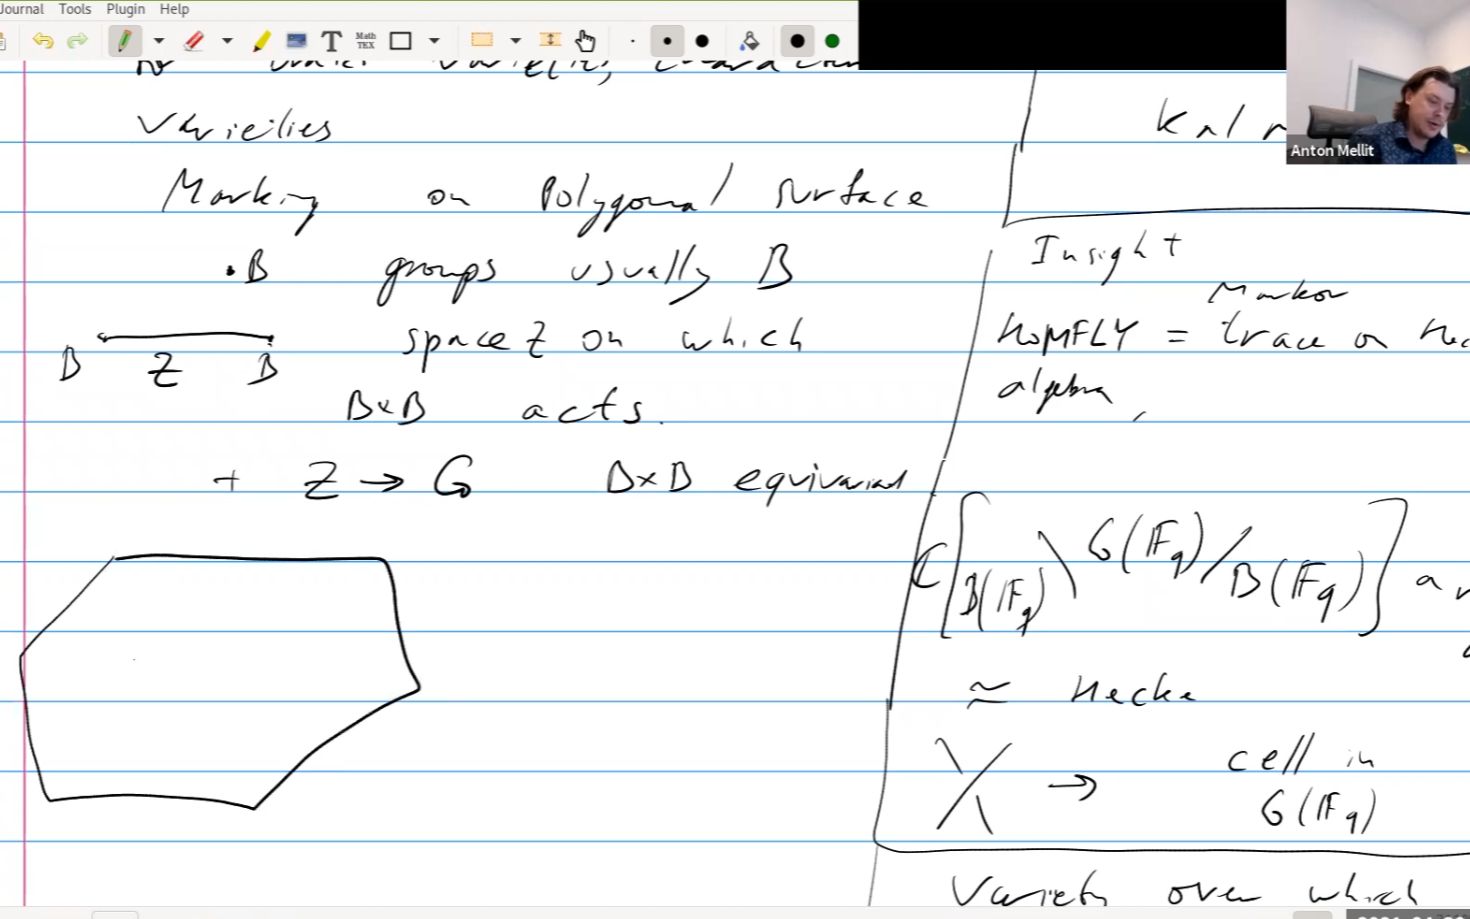 Journal Tools Plugin Help
T Math TEX
Varieties
Marking on Polygonal surface
• B groups usually B
B Z B space Z on which
B×B acts.
+ Z → G B×B equivariant
Anton Mellit
Insight
Markov
HOMFLY = trace on Hec
algebra,
ℂ[B(𝔽q)\G(𝔽q)/B(𝔽q)]
≃ Hecke
→ cell in
G(𝔽q)
Variety over which